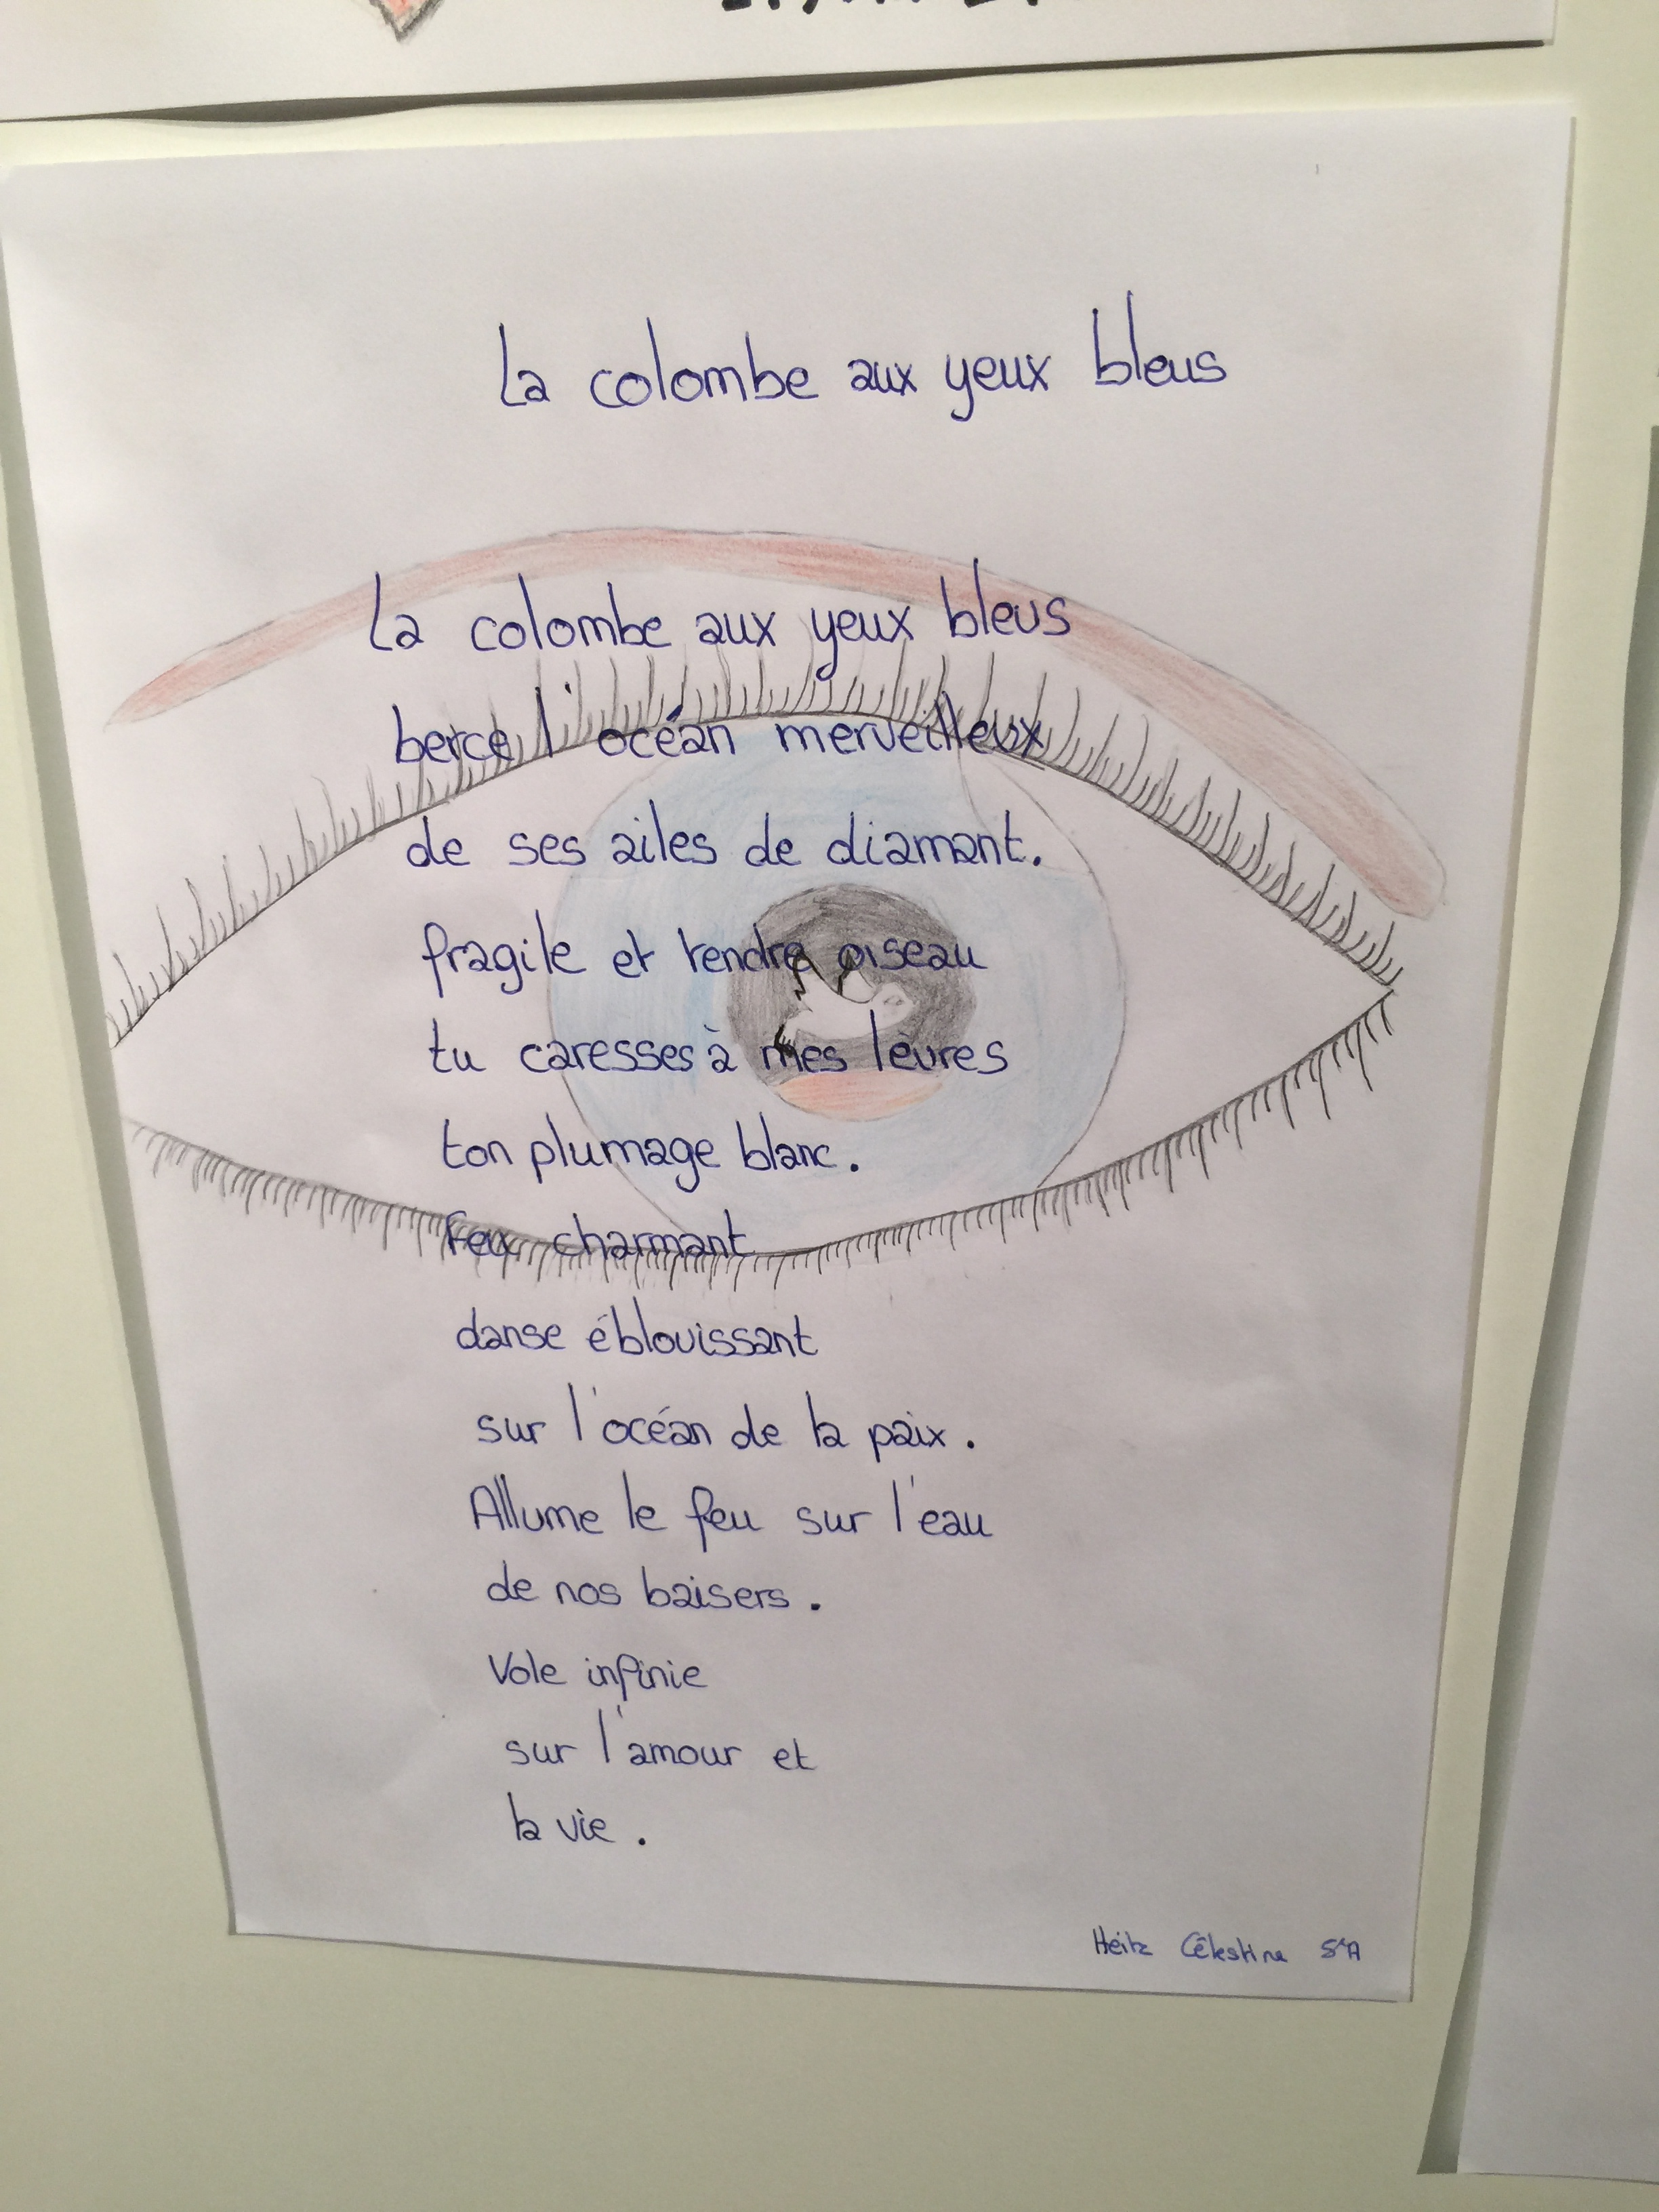 La colombe aux yeux bleus
La colombe aux yeux bleus
berce l'océan merveilleux
de ses ailes de diamant.
fragile et tendre oiseau
tu caresses à mes lèvres
ton plumage blanc.
Feu charmant
danse éblouissant
sur l'océan de la paix.
Allume le feu sur l'eau
de nos baisers.
Vole infinie
sur l'amour et
la vie.
Heitz Célestine 5eA